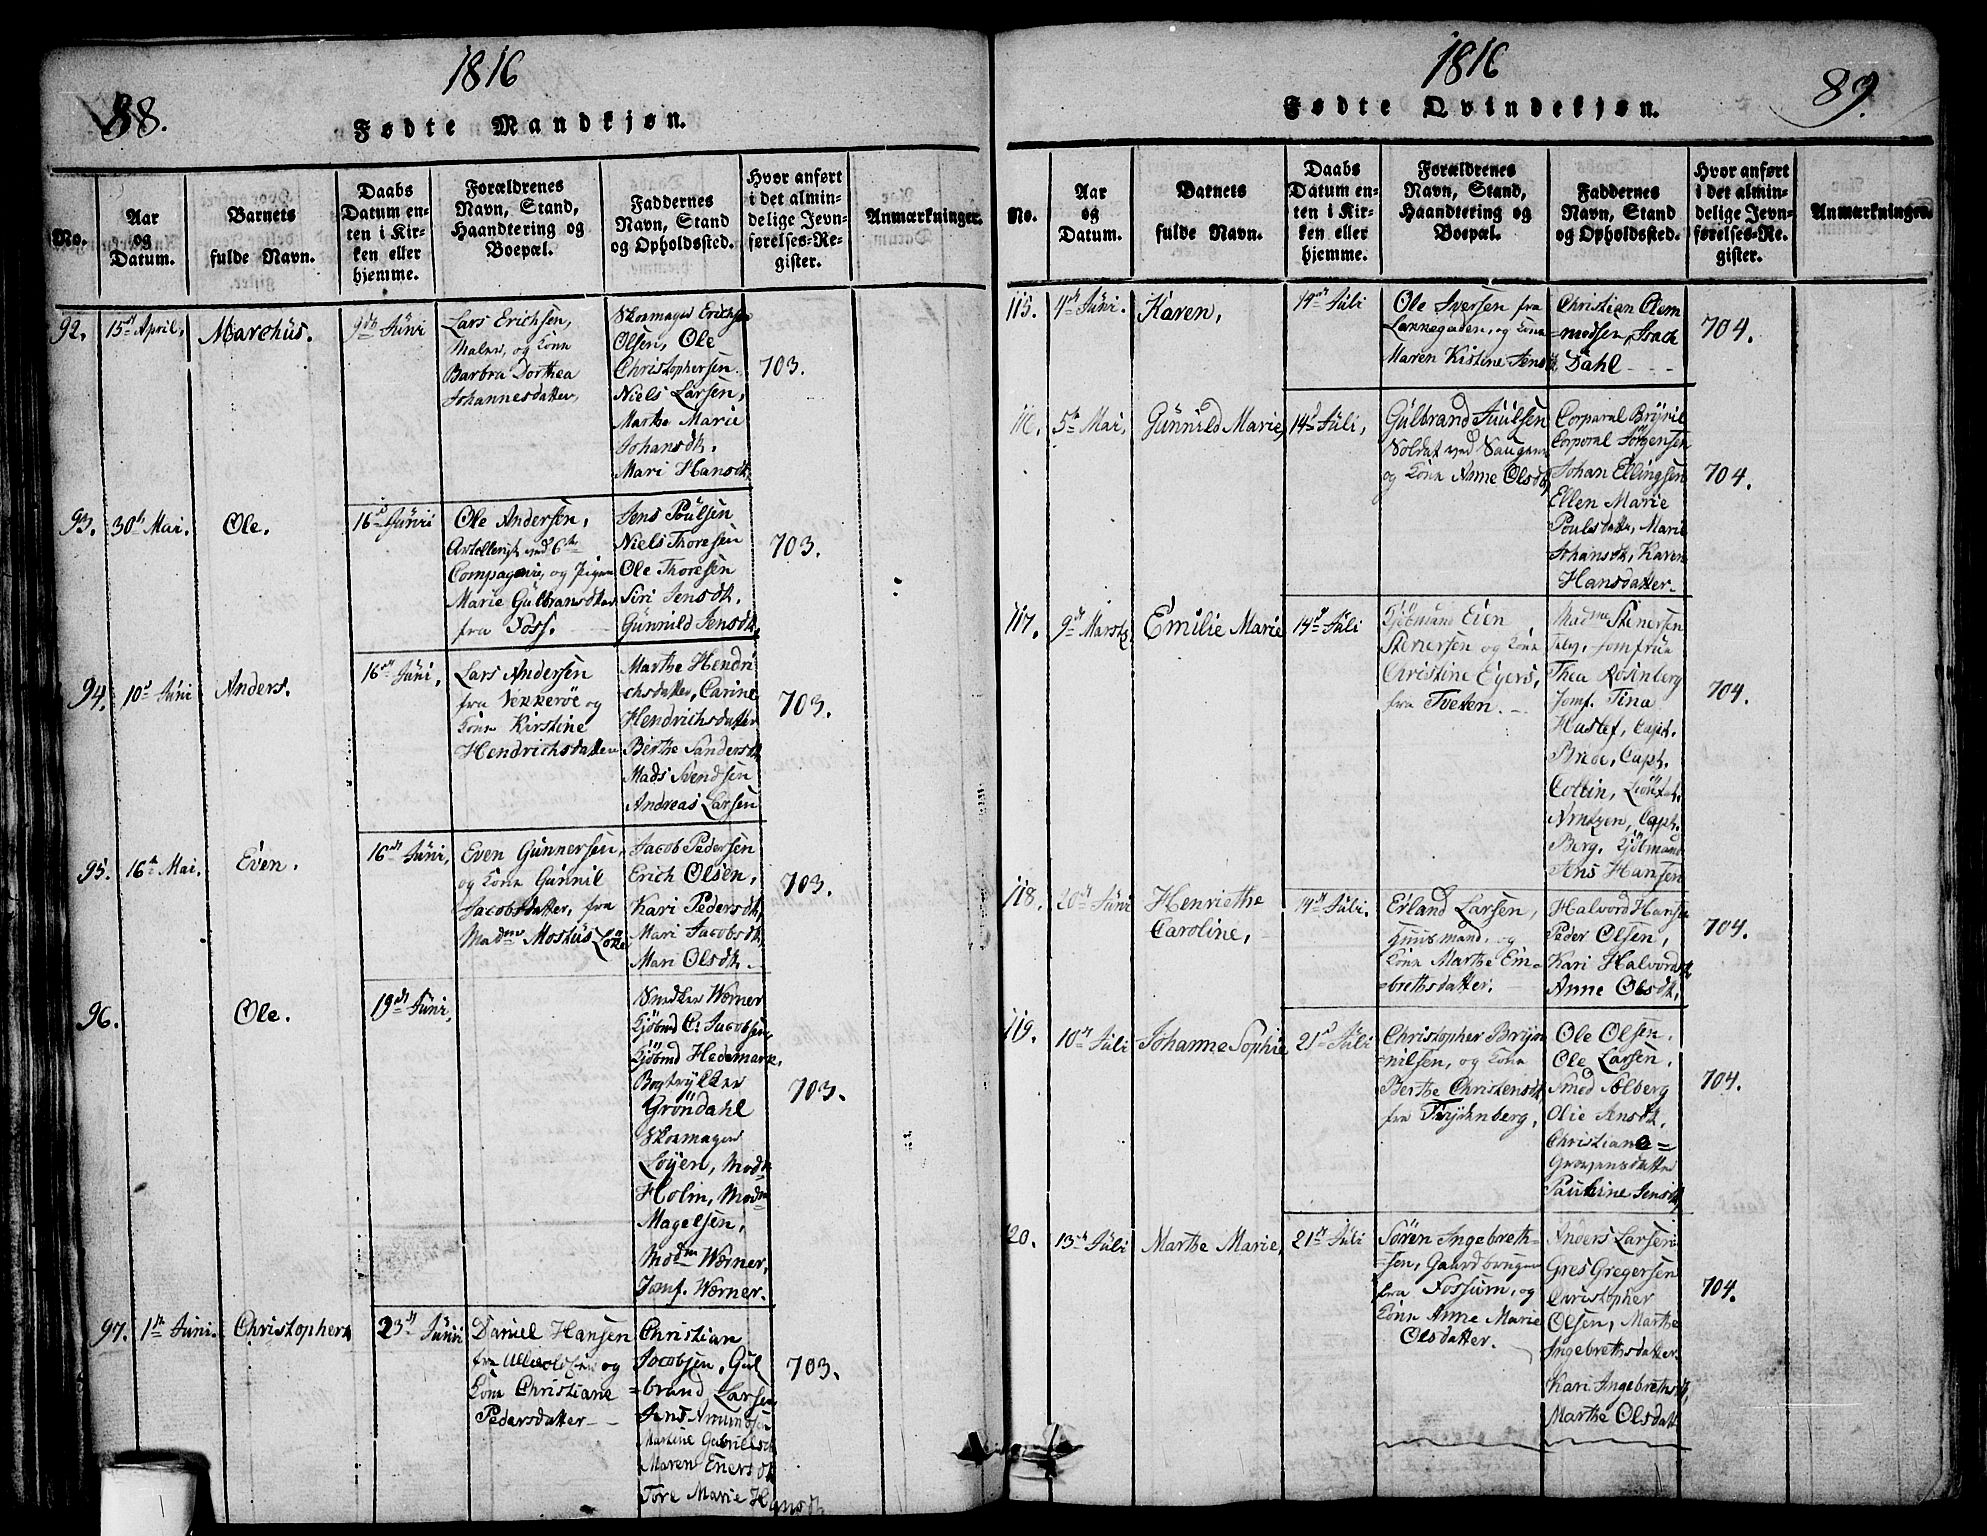 1816
88.
Fødte Mandkjøn.
No.
Aar
og
Datum.
Barnets
fulde Navn.
Daabs
Datum en-
ten i Kir-
ken eller
hjemme.
Forældrenes
Navn, Stand,
Haandtering og
Boepæl.
Faddernes
Navn, Stand
og Opholdssted.
Hvor anført
i det almin-
delige Jevn-
førelses-Re-
gister.
Anmærkninger.
92.
15de April,
Marchus.
9de Júni
Lars Erichsen,
Maler, og Kone
Barbra Dorthea
Johannesdatter,
Skomager Erichsen
Olsen, Ole
Christophersen
Niels Larsen,
Marthe Marie
Johansdtr.
Mari Hansdtr.
703.
93.
30te Mai.
Ole.
16de Júni
Ole Andersen,
Artellerist ved 6te
Compagnie, og Pigen
Marie Gúlbransdtter
fra Foss.
Jens Poúlsen
Niels Thoresen
Ole Thoresen
Siri Jensdtr.
Gúnnild Jensdtr.
703.
94.
10de Júni
Anders.
16de Júni,
Lars Andersen
fra Vekkerøe og
Kone Kirstine
Hendrichsdatter
Marthe Hendri
chsdatter, Carine
Hendrichsdatter
Berthe Sandersdtr
Mads Svendsen
Andreas Larsen
703.
95.
16te Mai.
Even.
16de Júni,
Even Gúnnersen,
og Kone Gúnnil
Jacobsdatter, fra
Madm Mostús Løke
Jacob Pedersen
Erich Olsen,
Kari Pedersdtr,
Mari Jacobsdtr,
Mari Olsdtr.
703.
96.
Ole.
19de Júni,
Snedker Wørner
Kjöbmd C. Jacobsen,
Kjöbmd Hedemark,
Bogtrÿkker
Gröndahl
Skomager
Løÿen, Madm
Holm, Madm
Magelsen,
Madm Wørner,
Jomf. Wørner.
703.
97.
1ste Júni.
Christophers
23de Júni
Daniel Hansen
fra Ullevoldsvei og
Kone Christiane
Pedersdatter
Christian
Jacobsen, Gúl
=brand Larsen
Jens Amúndsen
Martine Gabrielsdtr
Maren Enersdtr
Tore Marie Hansdtr
703.
1816
89.
Fødte Qvindekjøn.
No.
Aar
og
Datum.
Barnets
fulde Navn.
Daabs
Datum en-
ten i Kir-
ken eller
hjemme.
Forældrenes
Navn, Stand,
Haandtering og
Boepæl.
Faddernes
Navn, Stand
og Opholdssted.
Hvor anført
i det almin-
delige Jevn-
førelses-Re-
gister.
Anmærkninger.
115.
4de Júni.
Karen,
14de Júli
Ole Iversen fra
Lakkegaden, og Kone
Maren Kistine Jensdtr
Christian Clem
=medsen, Isach
Dahl
704.
116.
5te Mai,
Gúnnild Marie,
14de Júli,
Gúlbrand Júúlsen
Soldat ved Saugene
og Kone Anne Olsdtr,
Corparal Brÿnil
Corporal Jörgensen
Johan Ellingsen
Ellen Marie
Poulsdatter, Marie
Johansdtr, Karen
Hansdatter.
704.
117.
9de Marts,
Emilie Marie
14de Júli
Kjöbmand Eien
Stenersen og Kone
Christine Eÿers,
fra Tveten.
Madme Stenersen
Jomfrúe
Thea Rosenberg
Jomf. Tina
Haslef, Capt.
Brede, Capt.
Collin, Lieút.
Capt.
Berg, Kjöbmand
Ans Hansen
704.
118.
20de Júni
Henriethe
Caroline,
14de Júli.
Erland Larsen,
Húúsmand, og
Kone Marthe Em=
=brethsdatter.
Halvord Hansen
Peder Olsen,
Kari Halvordsdtr,
Anne Olsdtr,
704.
119.
10de Júli
Johanne Sophie
21de Júli
Christopher Brÿn
=nilsen, og Kone
Berthe Christensdtr
fra Frÿdenberg,
Ole Olsen.
Ole Larsen,
Smed Solberg
Olie Ansdtr,
Christiane=
Pauline Jensdtr,
704.
120.
13de Júli
Marthe Marie,
21de Júli
Sören Ingebreth=
=sen, Gaardbruger
fra Fossúm, og
Kone Anne Marie
Olsdatter.
Anders Larsen
Gres Gregersen
Christopher
Olsen, Marthe
Ingebrethsdatter
Kari Ingebrethsdtr,
Marthe Olsdatt
704.